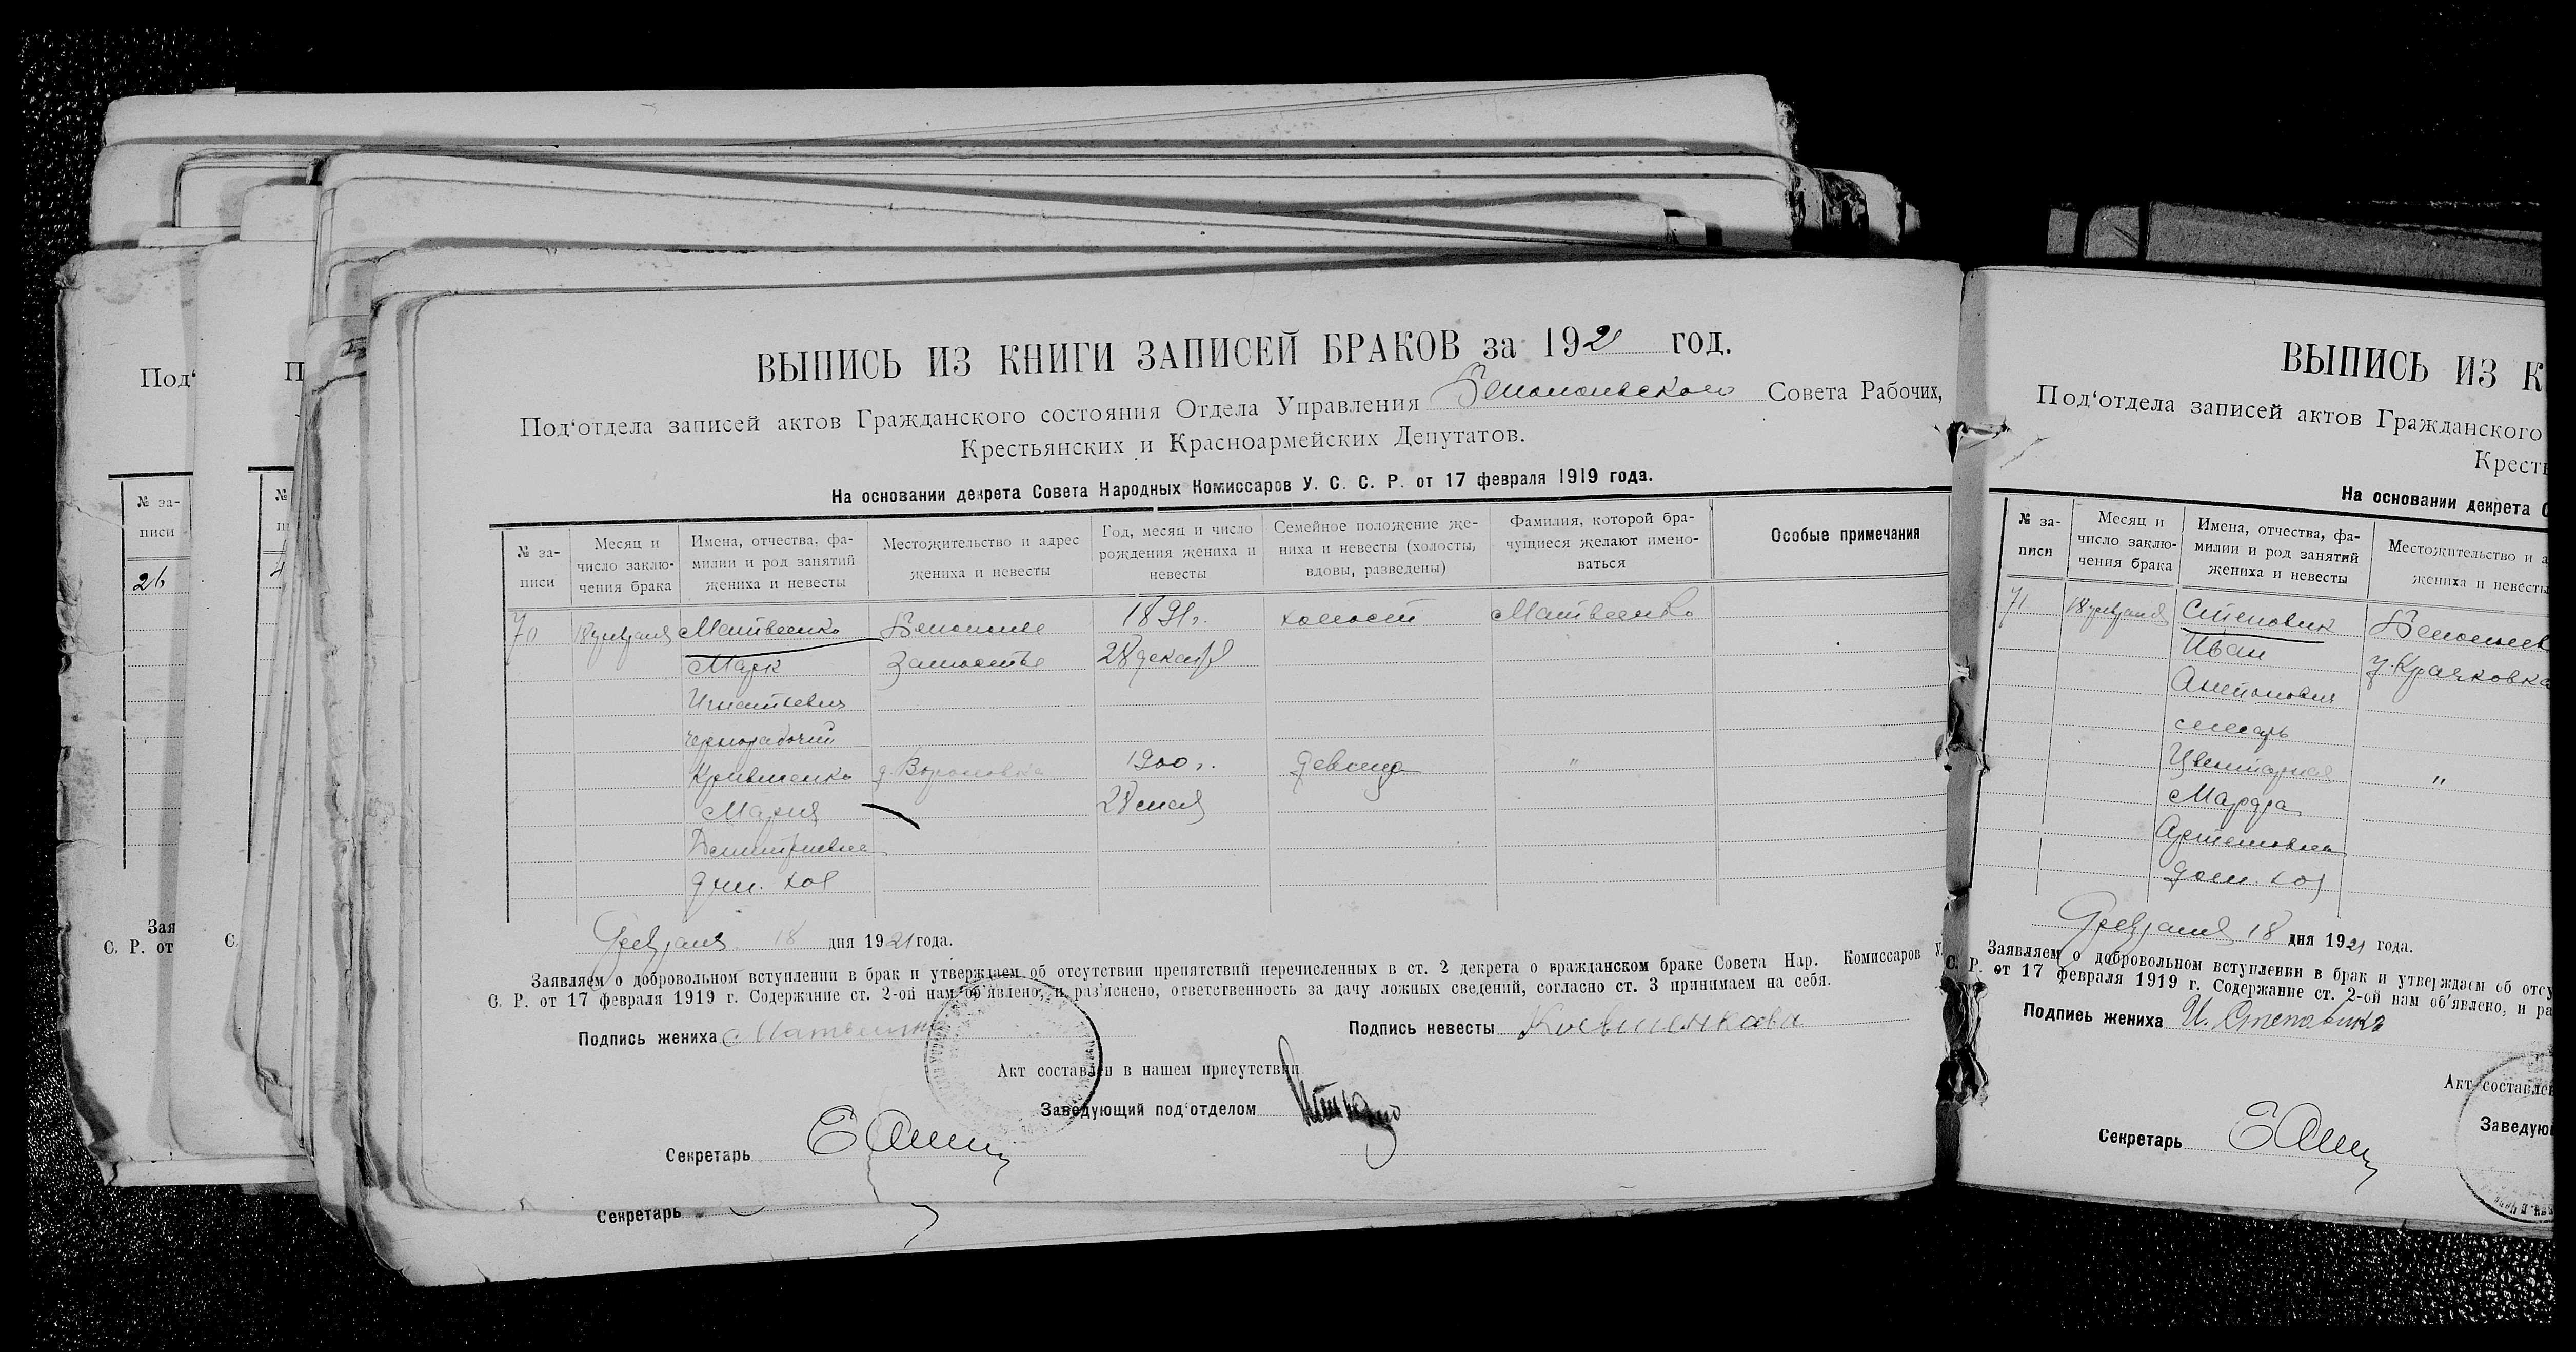 ВЫПИСЬ ИЗ КНИГИ ЗАПИСЕЙ БРАКОВ за 1921 год.
Под‘отдела записей актов Гражданского состояния Отдела Управления Совета Рабочих,
Крестьянских и Красноармейских Депутатов.
На основании декрета Совета Народных Комиссаров У. С. С. Р. от 17 февраля 1919 года.
№ за-
писи
Месяц и
число заклю-
чения брака
Имена, отчества, фа-
милии и род занятий
жениха и невесты
Местожительство и адрес
жениха и невесты
Год, месяц и число
рождения жениха и
невесты
Семейное положение же-
ниха и невесты (холосты,
вдовы, разведены)
Фамилия, которой бра-
чущиеся желают имено-
ваться
Особые примечания
70 18 февраля Матвеенко 1891 г. холост Матвеенко
Марк Замостье 28 декабря
Игнатьевич
чернорабочий
Крившенко д. Вороновка 1900 г. девица "
Мария 28 мая
Дмитриевна
дом. хоз
Февраля 18 дня 1921 года.
Заявляем о добровольном вступлении в брак и утверждаем об отсутствии препятствий перечисленных в ст. 2 декрета о гражданском браке Совета Нар. Комиссаров У.
С. Р. от 17 февраля 1919 г. Содержание ст. 2-ой нам об‘явлено, и раз‘яснено, ответственность за дачу ложных сведений, согласно ст. 3 принимаем на себя.
Подпись жениха
Подпись невесты
Акт составлен в нашем присутствии
Заведующий под‘отделом
Секретарь
Секретарь
ВЫПИСЬ ИЗ К
Под‘отдела записей актов Гражданского
Кресть
На основании декрета С
№ за-
писи
Месяц и
число заклю-
чения брака
Имена, отчества, фа-
милии и род занятий
жениха и невесты
Местожительство и а
жениха и невесты
71 18 февраля Степовик
Иван у. Крачковка
Антонович
слесарь
"
Марфа
Артемовна
дом. хоз
Февраля 18 дня 1921 года.
Заявляем о добровольном вступлении в брак и утверждаем об отсу
С. Р. от 17 февраля 1919 г. Содержание ст. 2-ой нам об‘явлено, и ра
Подпись жениха И. Степовик
Акт составлен
Заведую
Секретарь
Под‘
№ за-
писи
26
Зая
С. Р. от
П
№
С.